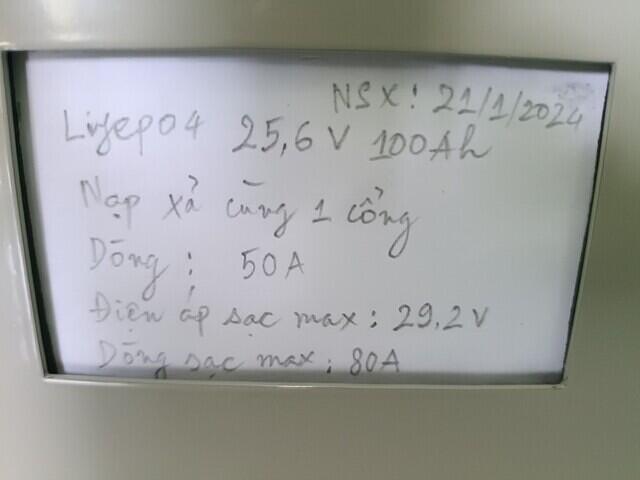 NSX: 21/1/2024
Lifepo4 25,6 V 100Ah
Nạp xả cùng 1 cổng
Dòng: 50A
Điện áp sạc max: 29,2 V
Dòng sạc max: 80A